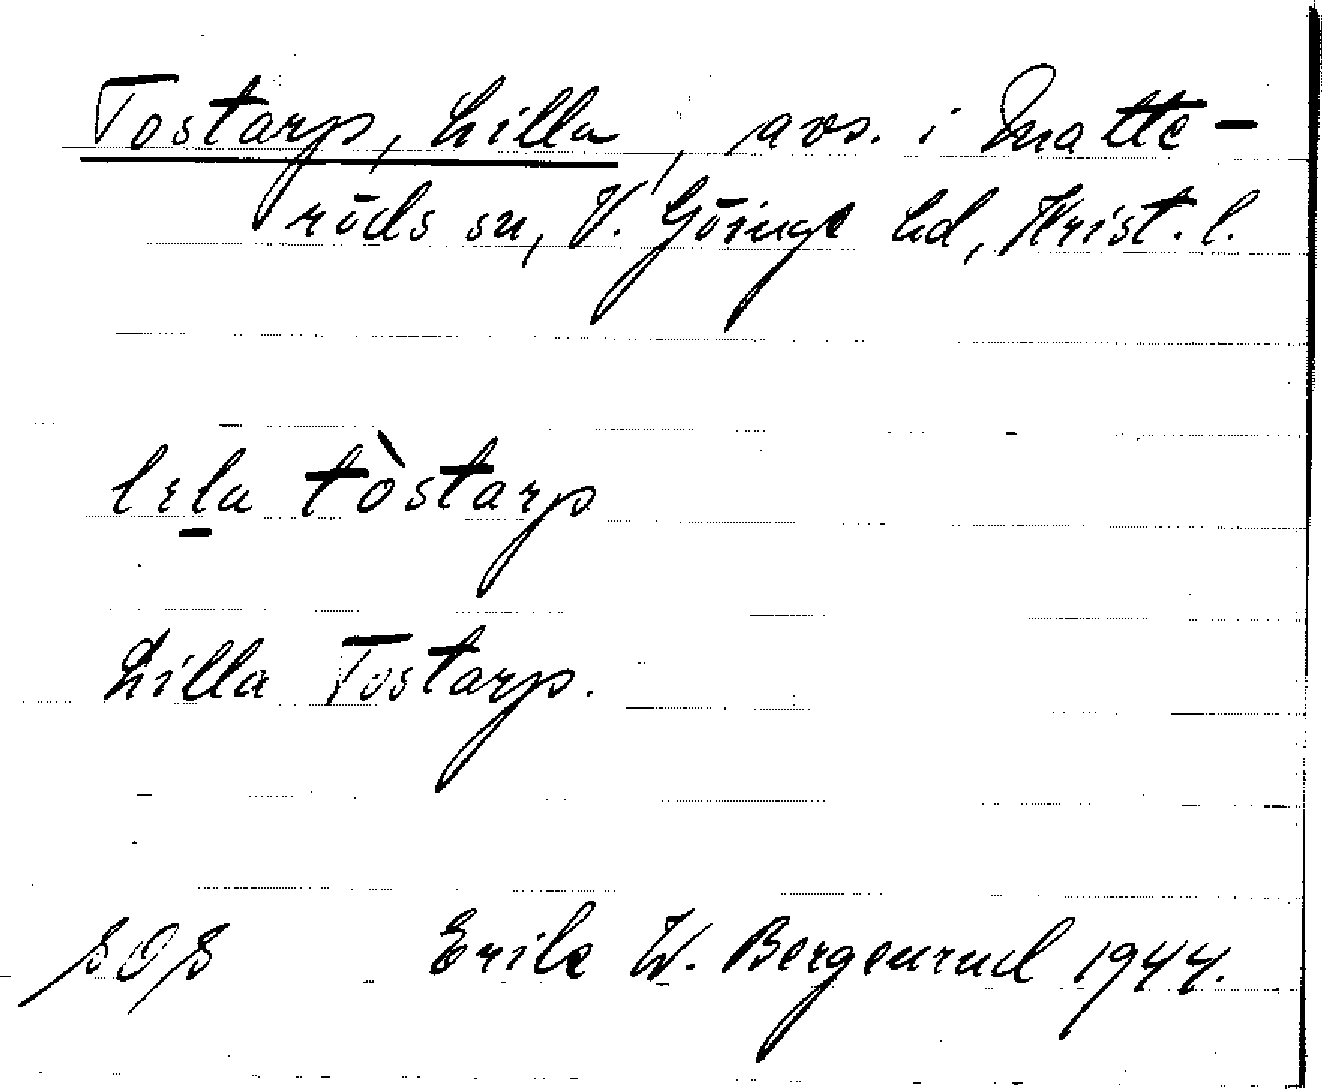 Tostarp, Lilla, avs. i Matte-
röds sn, V. Göinge hd, Krist. l.
lɛla tòstarp
Lilla Tostarp.
SOS Erik W. Bergenrud 1944.